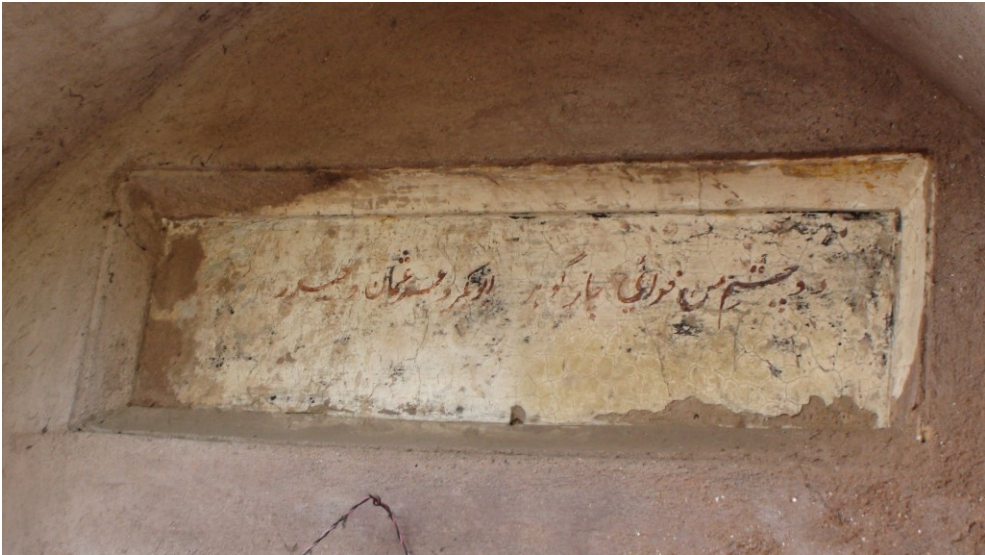 دو چشم من فدائی چار گوہر ابوبکر و عمر و عثمان و حیدر